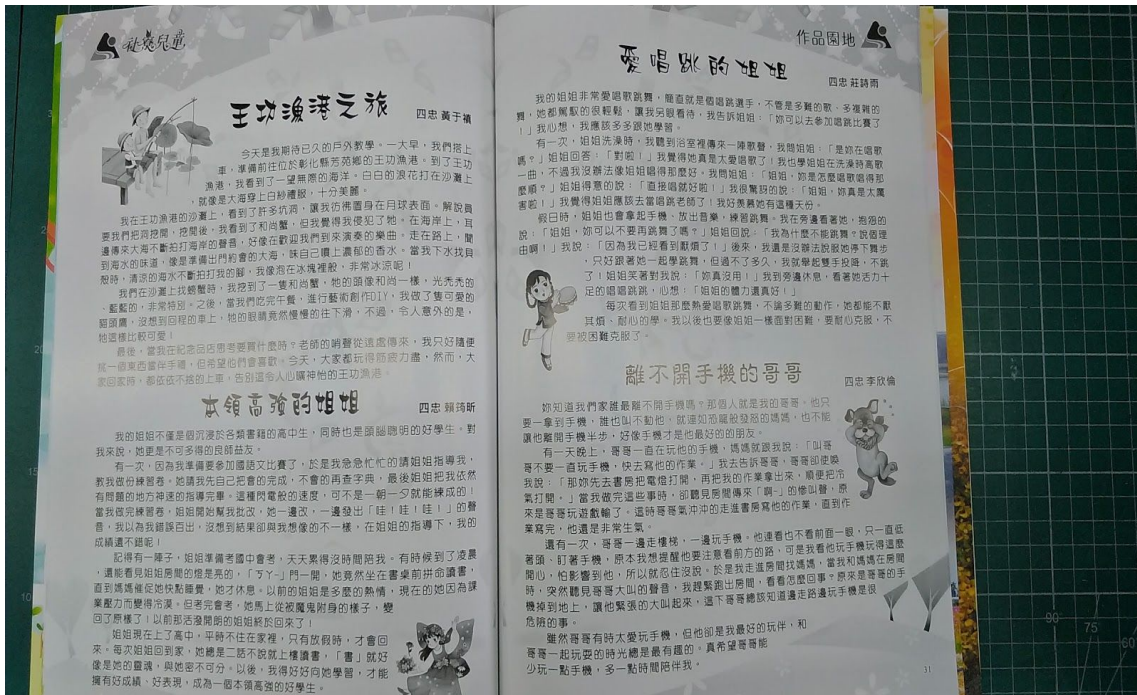 社寮兒童
王功漁港之旅
四忠 黃于禎
今天是我期待已久的戶外教學。一大早，我們搭上
車，準備前往位於彰化縣芳苑鄉的王功漁港。到了王功
漁港，我看到了一望無際的海洋。白白的浪花打在沙灘上
，就像是大海穿上白紗禮服，十分美麗。
我在王功漁港的沙灘上，看到了許多坑洞，讓我彷彿置身在月球表面。解說員
要我們把洞挖開，挖開後，我看到了和尚蟹，但我覺得我侵犯了牠。在海岸上，耳
邊傳來大海不斷拍打海岸的聲音，好像在歡迎我們到來演奏的樂曲。走在路上，聞
到海水的味道，像是準備出門約會的大海，味自己噴上濃郁的香水。當我下水找貝
殼時，清涼的海水不斷拍打我的腳，我像泡在冰塊裡般，非常冰涼呢！
我們在沙灘上找螃蟹時，我挖到了一隻和尚蟹，牠的頭像和尚一樣，光禿禿的
、藍藍的，非常特別。之後，當我們吃完午餐，進行藝術創作DIY，我做了隻可愛的
貓頭鷹，沒想到回程的車上，牠的眼睛竟然慢慢的往下滑，不過，令人意外的是，
牠這樣比較可愛！
最後，當我在紀念品店思考要買什麼時？老師的哨聲從遠處傳來，我只好隨便
挑一個東西當伴手禮，但希望他們會喜歡。今天，大家都玩得筋疲力盡，然而，大
家回家時，都依依不捨的上車，告別這令人心曠神怡的王功漁港。
本領高強的姐姐
四忠 賴琦昕
我的姐姐不僅是個沉浸於各類書籍的高中生，同時也是頭腦聰明的好學生。對
我來說，她更是不可多得的良師益友。
有一次，因為我準備要參加國語文比賽了，於是我急急忙忙的請姐姐指導我，
教我做份練習卷。她請我先自己把會的完成，不會的再查字典，最後姐姐把我依然
有問題的地方神速的指導完畢。這種閃電般的速度，可不是一朝一夕就能練成的！
當我做完練習卷，姐姐開始幫我批改，她一邊改，一邊發出「哇！哇！哇！」的聲
音，我以為我錯誤百出，沒想到結果卻與我想像的不一樣，在姐姐的指導下，我的
成績還不錯呢！
記得有一陣子，姐姐準備考國中會考，天天累得沒時間陪我。有時候到了凌晨
，還能看見姐姐房間的燈是亮的，「ㄎㄚ-」門一開，她竟然坐在書桌前拼命讀書，
直到媽媽催促她快點睡覺，她才休息。以前的姐姐是多麼的熱情，現在的她因為課
業壓力而變得冷漠。但考完會考，她馬上從被魔鬼附身的樣子，變
回了原樣了！以前那活潑開朗的姐姐終於回來了！
姐姐現在上了高中，平時不住在家裡，只有放假時，才會回
來。每次姐姐回到家，她總是二話不說就上樓讀書，「書」就好
像是她的靈魂，與她密不可分。以後，我得好好向她學習，才能
擁有好成績、好表現，成為一個本領高強的好學生。
作品園地
愛唱跳的姐姐
四忠 莊詩雨
我的姐姐非常愛唱歌跳舞，簡直就是個唱跳選手，不管是多難的歌、多複雜的
舞，她都駕馭的很輕鬆，讓我另眼看待，我告訴姐姐：「妳可以去參加唱跳比賽了
！」我心想，我應該多多跟她學習。
有一次，姐姐洗澡時，我聽到浴室裡傳來一陣歌聲，我問姐姐：「是妳在唱歌
嗎？」姐姐回答：「對啦！」我覺得她真是太愛唱歌了！我也學姐姐在洗澡時高歌
一曲，不過我沒辦法像姐姐唱得那麼好，我問姐姐：「姐姐，妳是怎麼唱歌唱得那
麼順？」姐姐得意的說：「直接唱就好啦！」我很驚訝的說：「姐姐，妳真是太厲
害啦！」我覺得姐姐應該去當唱跳老師了！我好羨慕她有這種天份。
假日時，姐姐也會拿起手機、放出音樂，練習跳舞。我在旁邊看著她，抱怨的
說：「姐姐，妳可以不要再跳舞了嗎？」姐姐回說：「我為什麼不能跳舞？說個理
由啊！」我說：「因為我已經看到厭煩了！」後來，我還是沒辦法說服她停下舞步
，只好跟著她一起學跳舞，但過不了多久，我就舉起雙手投降，不跳
了！姐姐笑著對我說：「妳真沒用！」我到旁邊休息，看著她活力十
足的唱唱跳跳，心想：「姐姐的體力還真好！」
每次看到姐姐那麼熱愛唱歌跳舞，不論多難的動作，她都能不厭
其煩、耐心的學。我以後也要像姐姐一樣面對困難，要耐心克服，不
要被困難克服了。
離不開手機的哥哥
四忠 李欣倫
妳知道我們家誰最離不開手機嗎？那個人就是我的哥哥。他只
要一拿到手機，誰也叫不動他，就連如恐龍般發怒的媽媽，也不能
讓他離開手機半步，好像手機才是他最好的的朋友。
有一天晚上，哥哥一直在玩他的手機，媽媽就跟我說：「叫哥
哥不要一直玩手機，快去寫他的作業。」我去告訴哥哥，哥哥卻使喚
我說：「那妳先去書房把電燈打開，再把我的作業拿出來，順便把冷
氣打開。」當我做完這些事時，卻聽見房間傳來「啊-」的慘叫聲，原
來是哥哥玩遊戲輸了。這時哥哥氣沖沖的走進書房寫他的作業，直到作
業寫完，他還是非常生氣。
還有一次，哥哥一邊走樓梯，一邊玩手機。他連看也不看前面一眼，只一直低
著頭、盯著手機，原本我想提醒他要注意看前方的路，可是我看他玩手機玩得這麼
開心，怕影響到他，所以就忍住沒說。於是我走進房間找媽媽，當我和媽媽在房間
時，突然聽見哥哥大叫的聲音，我趕緊跑出房間，看看怎麼回事？原來是哥哥的手
機掉到地上，讓他緊張的大叫起來，這下哥哥總該知道邊走路邊玩手機是很
危險的事。
雖然哥哥有時太愛玩手機，但他卻是我最好的玩伴，和
哥哥一起玩耍的時光總是最有趣的。真希望哥哥能
少玩一點手機，多一點時間陪伴我。
31
90
75
60